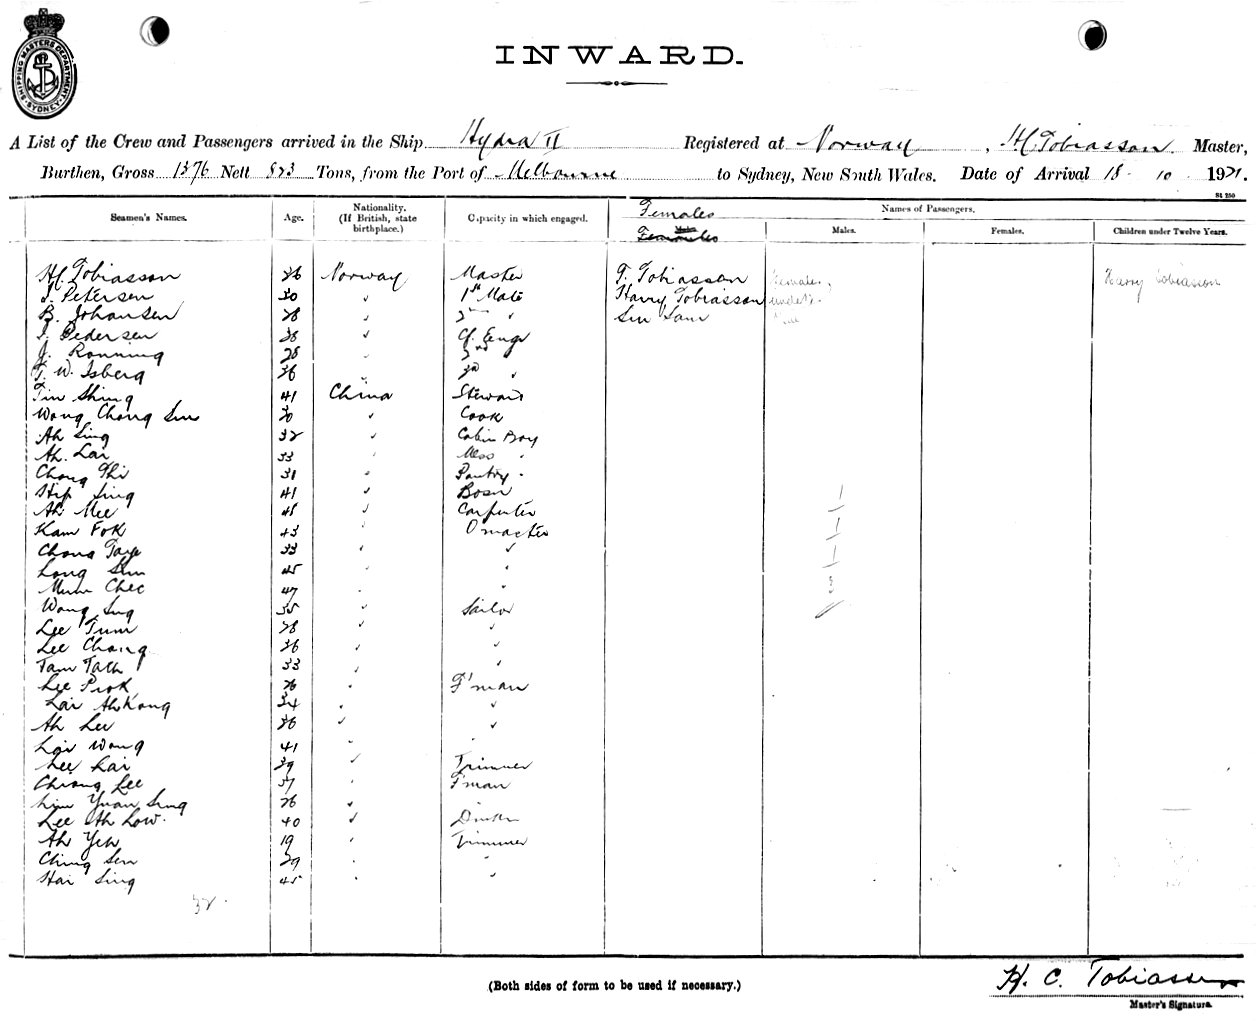 SHIPPING MASTERS DEPARTMENT SYDNEY
INWARD.
A List of the Crew and Passengers arrived in the Ship Hydra II Registered at Norway, H. Tobiasson Master,
Burthen, Gross 1376 Nett 823 Tons, from the Port of Melbourne to Sydney, New South Wales. Date of Arrival 18 . 10 . 1921.
Seamen's Names. Age. Nationality. (If British, state birthplace.) Capacity in which engaged. Females Names of Passengers.
Females Males. Females. Children under Twelve Years.
H. Tobiasson 36 Norway Master F. Tobiasson Female, Harry Tobiasson
Petersen 30 " 1st Mate Harry Tobiasson under
B. Johansen 28 " 2nd " Sin Sam
Pedersen 38 " Cf. Eengr
J. Ronning 28 " 2nd "
T. W. Isberg 36 " 3rd "
Tin Shing 41 China Steward
Wong Chong Sin 30 " Cook
Ah Sing 32 " Cabin Boy
Ah. Lai 33 " Mess "
Chong Thi 31 " Pantry "
Hip Sing 41 " Bosn 1
Ah Mee 48 " Carpenter
Kam Fok 43 " Qmaster 1
Chong Taye 33 " "
Long Sin 45 " " 1
Mum Chee 47 " " 3
Wong Sug 35 " Sailor
Lee Tum 28 " "
Lee Chong 36 " "
Tam Tath 33 " "
Lee Prok 26 " F'man
Lai Ah Kong 34 " "
Ah Lee 36 " "
Lai Wong 41 " "
Lee Kai 39 " Trimmer
Cheong Lee 37 " F'man
Lim Yuan Sing 26 " "
Lee Ah Low. 40 " Donkn
Ah Yek 19 " Trimmer
Ching Sen 29 " "
Hai Sing 45 " "
32
(Both sides of form to be used if necessary.)
H. C. Tobiassen
Master's Signature.